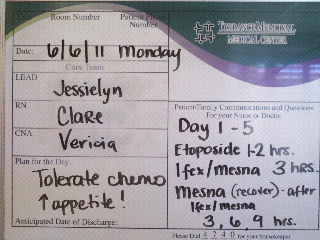 Room Number
Patient Phone Number
TORRANCE MEMORIAL
MEDICAL CENTER
Date: 6/6/11 Monday
Care Team
LEAD
Jessielyn
RN
Clare
CNA
Vericia
Plan for the Day
Tolerate chemo
↑ appetite!
Anticipated Date of Discharge:
Patient/Family Communications and Questions
For your Nurse or Doctor
Day 1-5
Etoposide 1-2 hrs.
Ifex/mesna 3 hrs.
Mesna (recover)-after
Ifex/mesna
3, 6, 9 hrs.
Please Dial 4740 for your housekeeper